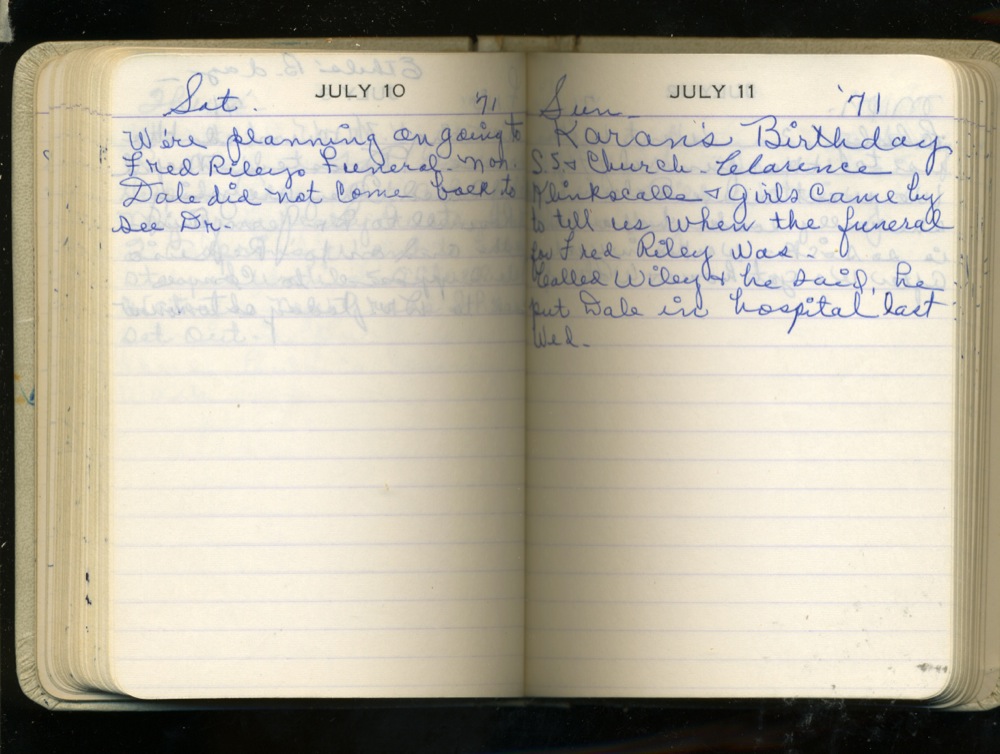 JULY 10
Sat. '71
We're planning on going to
Fred Rileys Funeral. Mon.
Dale did not come back to
see Dr.
JULY 11
Sun. '71
Karan's Birthday
S.S. & Church. Clarence
Klinkscalle & Girls came by
to tell us when the funeral
for Fred Riley was.
Called Wiley & he said, he
put Dale in hospital last
Wed.